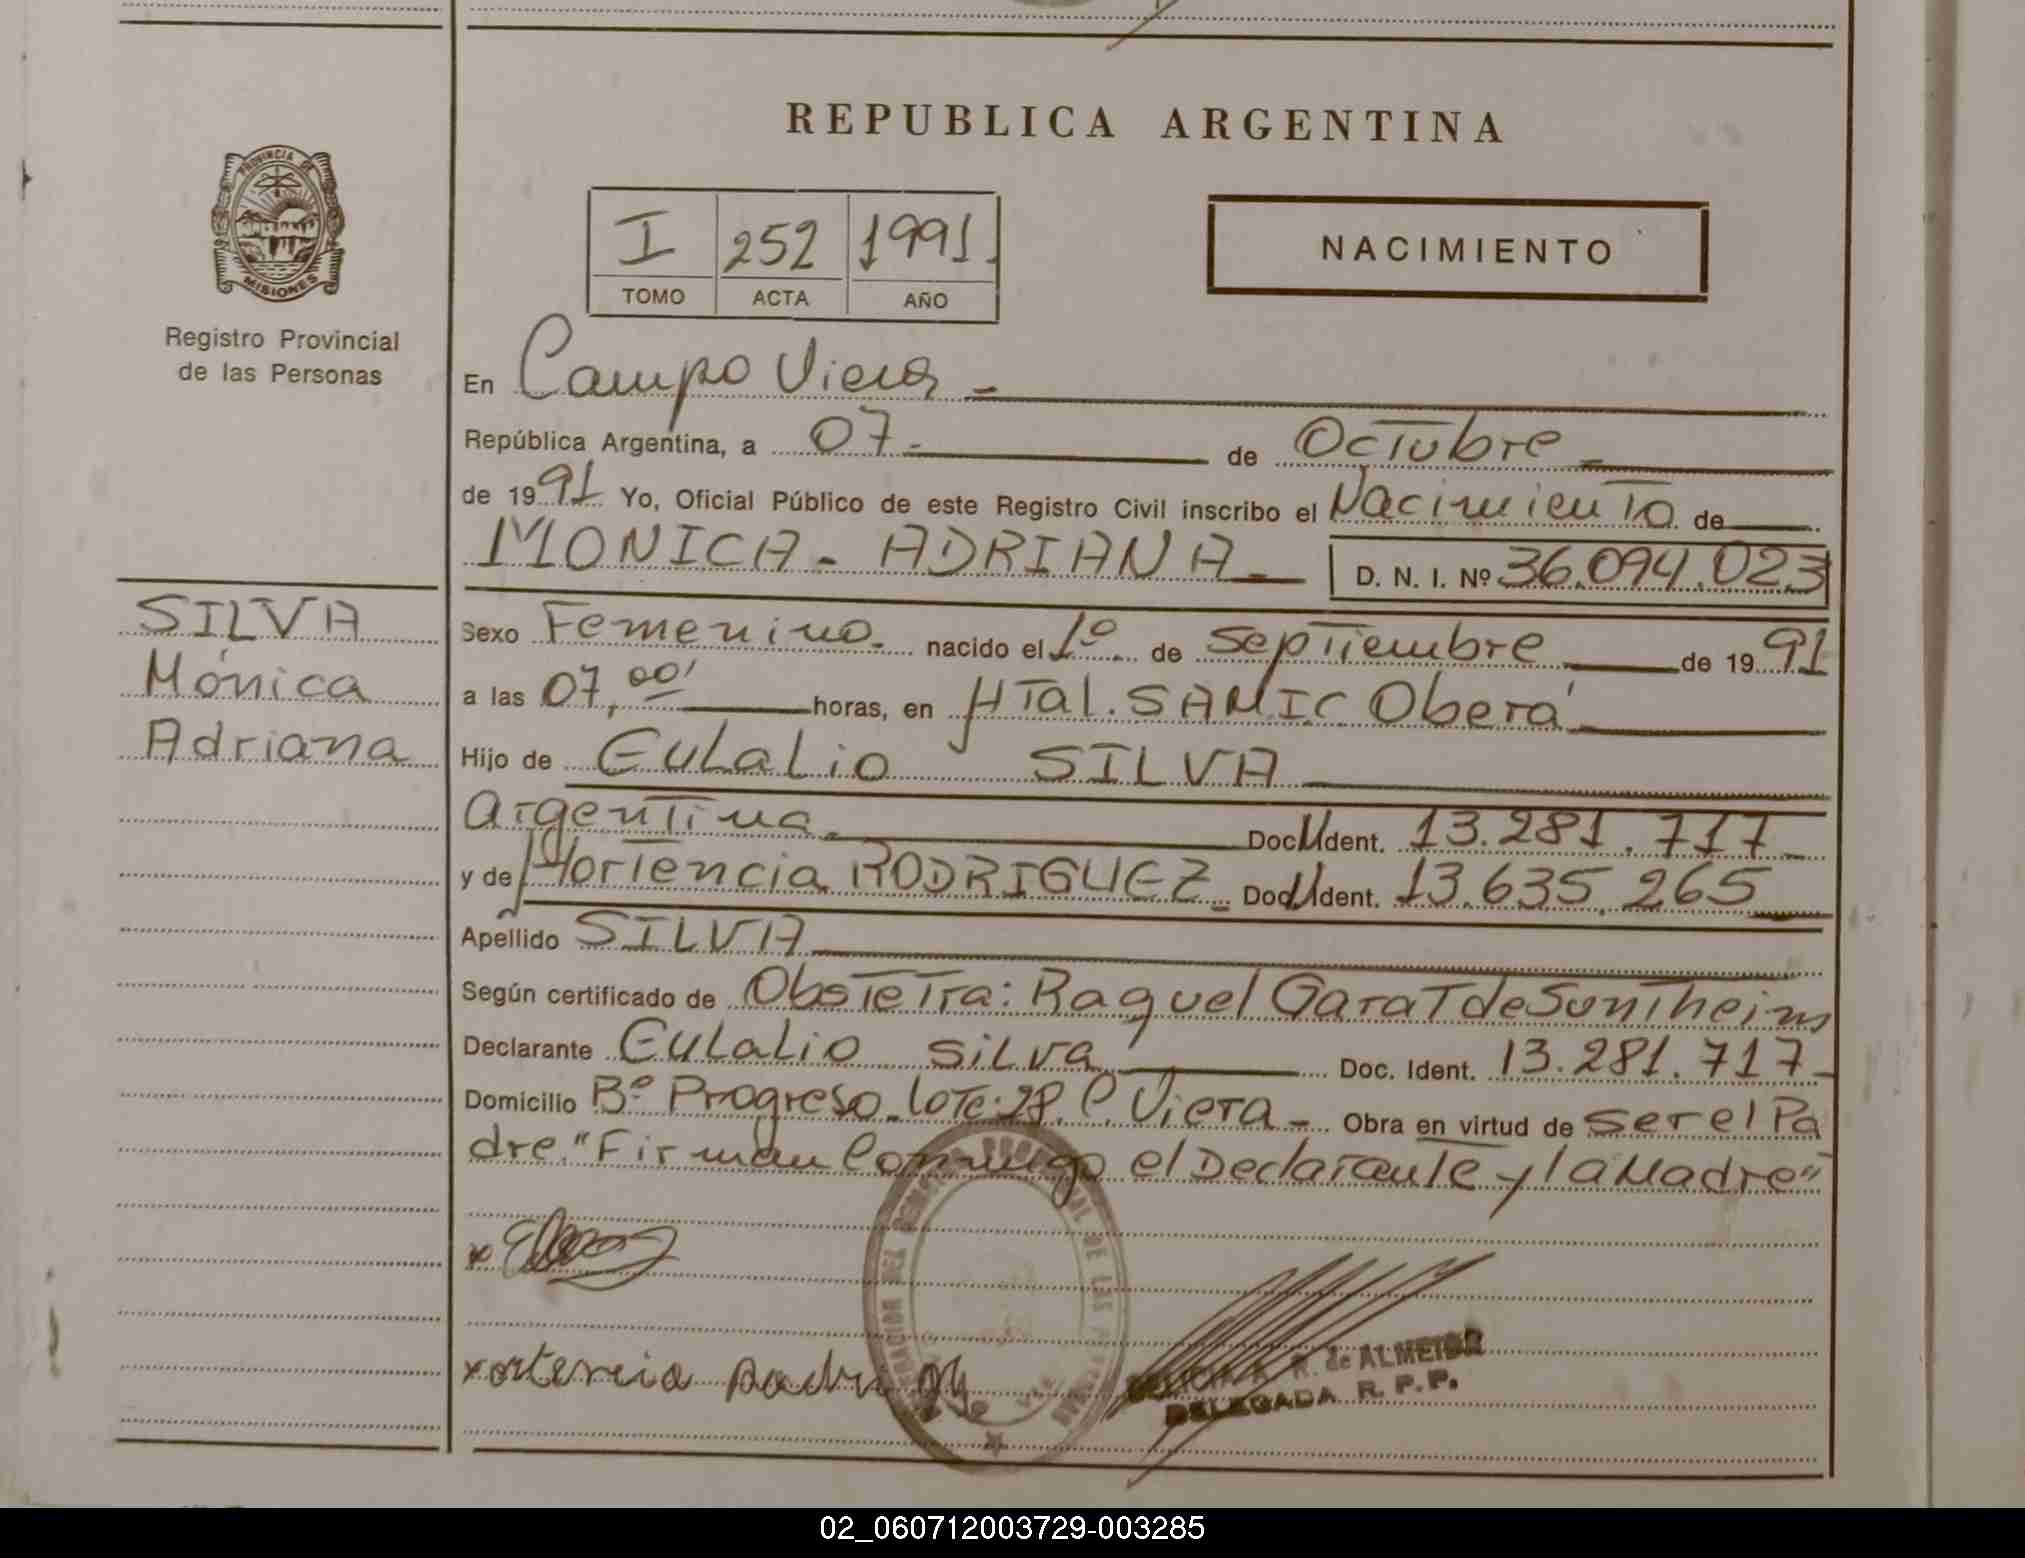 REPUBLICA ARGENTINA
PROVINCIA DE
MISIONES
Registro Provincial
de las Personas
I 252 1991
TOMO ACTA AÑO
NACIMIENTO
En Campo Viera
República Argentina, a 07 de Octubre
de 1991 Yo, Oficial Público de este Registro Civil inscribo el Nacimiento de
MONICA - ADRIANA D. N. I. Nº 36.094.023
SILVA
Mónica
Adriana
Sexo Femenino. nacido el 1º de septiembre de 1991
a las 07,00' horas, en HTal. SAMIC Oberá
Hijo de Eulalio SILVA
Argentina Doc U Ident. 13.281.717
y de Hortencia RODRIGUEZ Doc U Ident. 13.635.265
Apellido SILVA
Según certificado de Obstetra: Raquel Garat de Sontheim
Declarante Eulalio silva Doc. Ident. 13.281.717
Domicilio Bº Progreso Lote: 28. C. Viera - Obra en virtud de ser el Pa
dre. "Firman Conmigo el Declarante y la Madre"
R. de ALMEIDA
DELEGADA R. P. P.
02_060712003729-003285